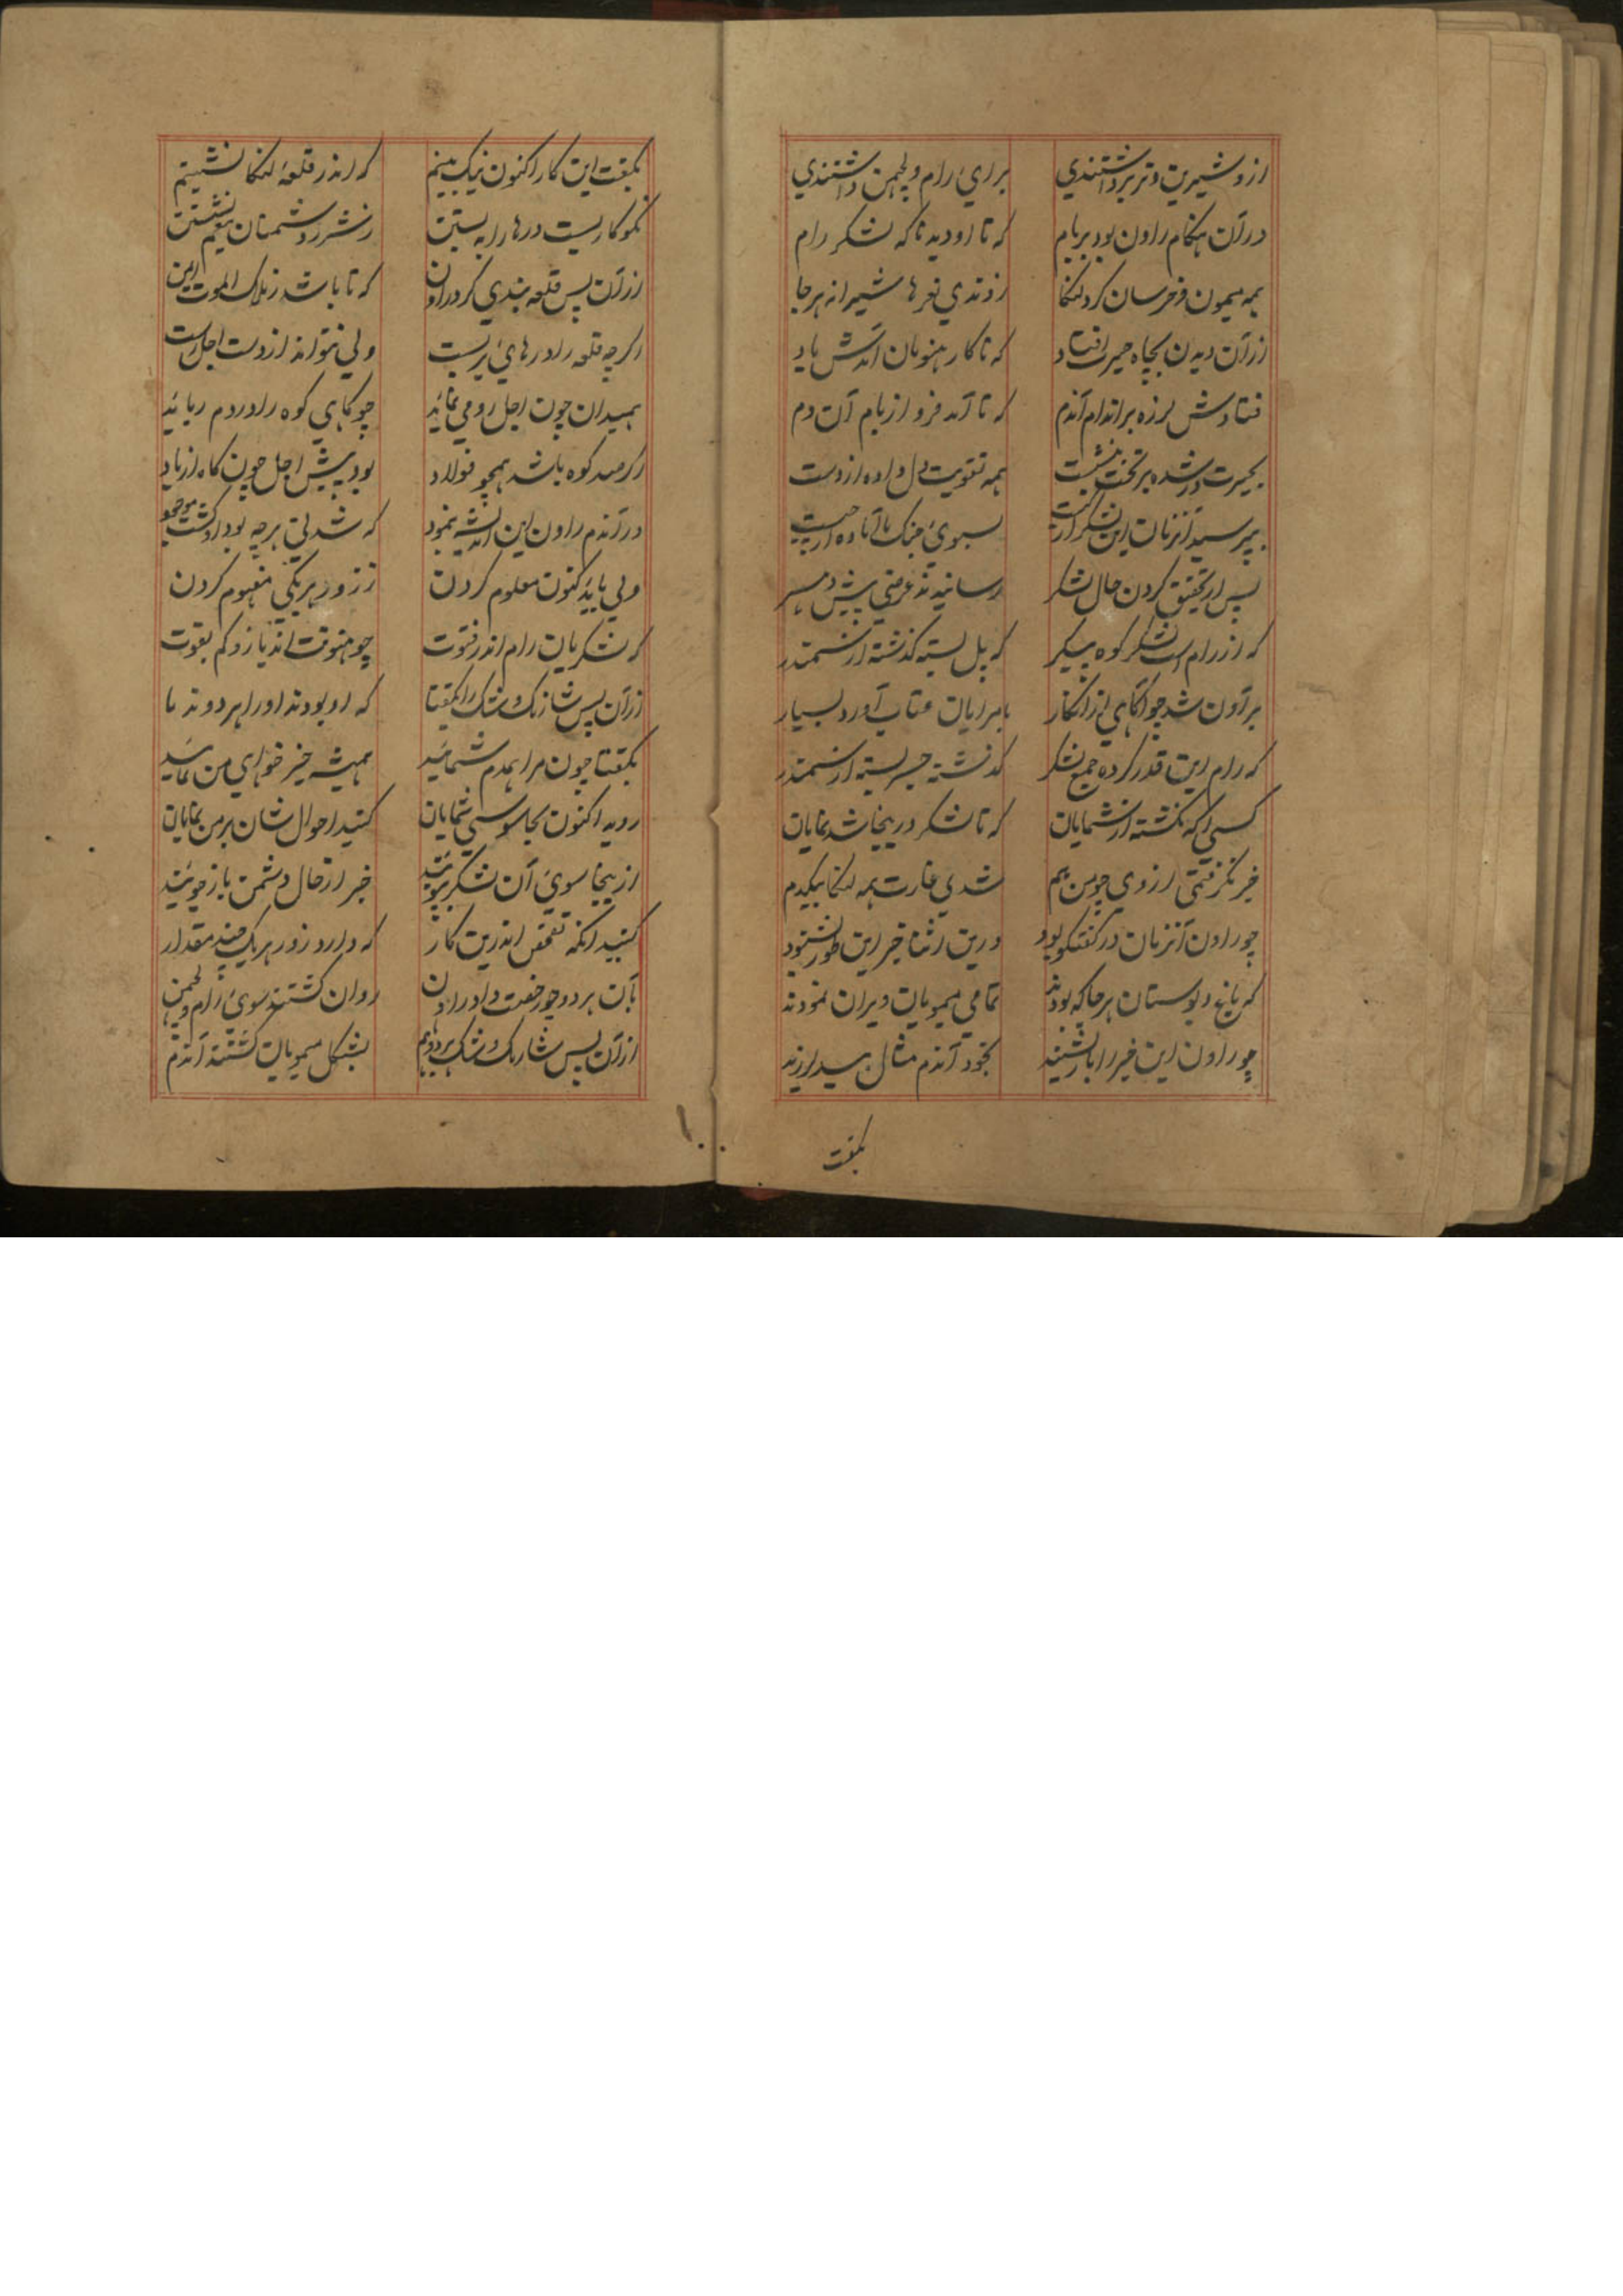 ازو شیرین و تر برداشتندی برای رام و لچمن داشتندی
در آن هنکام راون بود بر بام که تا او دید ناکه لشکر رام
همه میمون و خرسان کرد لنکا زدندی نعرها شیرانه هر جا
از آن دیدن بچاه حیرت افتاد که تا کار هنومان آمدش یاد
فتادش لرزه بر اندام آندم که تا آمد فرو از بام آن دم
بحیرت در شده بر تخت بنشست همه تقویت دل داده از دست
بپرسید آنزمان این لشکر از کیست بسوی جنک آماده از چیست
پس از تحقیق کردن حال لشکر رسانیدند عرضی پیش مهتر
که از رام است لشکر کوه پیکر که پل بسته کذشته از سمندر
بر آون شد چو آکاهی از آنکار بامرایان عتاب آورد بسیار
که رام این قدر کرده جمع لشکر کذشته جسر بسته از سمندر
کسی آکه نکشته از شمایان که تا لشکر در ینجا شد نمایان
خبر نکرفتمی از وی چو من هم شدی غارت همه لنکا بیکدم
چو راون آنزمان در کفتکو بود درین اثنا خبر این طور بشنود
که باغ و بوستان هر جا که بودند تمامی میمونان ویران نمودند
چو راون این خبر را باز بشنید بخود آندم مثال بید لرزید
بکفت
بکفت این کار اکنون نیک بینم که اندر قلعه لنکا نشینم
نکو کاریست درها را به بستن ز شر دشمنان بیغم نشستن
از آن پس قلعه بندی کرد راون که تا باشد ز ملک الموت ایمن
اکر چه قلعه را درهای بربست ولی نتواند از دست اجل رست
همیدان چون اجل رو می نماید چو کاهی کوه را در دم رباید
اکر صد کوه باشد همچو فولاد بود پیش اجل چون کاه از باد
در آندم راون این اندیشه بنمود که شدنی هر چه بود او کشت موجود
ولی باید کنون معلوم کردن ز زور هر یکی مفهوم کردن
که لشکریان رام اندر فتوت چو هنونت اند یا زو کم بقوت
از آن پس شارنک و شک را بکفتا که او بودند او را هر دو همتا
بکفتا چون مرا همدم شمائید همیشه خیر خواهی من نمائید
روید اکنون بجاسوسی شمایان کنید احوال شان بر من نمایان
ازینجا سوی آن لشکر بپوئید خبر از حال دشمن باز جوئید
کنید آنکه تفحص اندرین کار که دارد زور هر یک چند مقدار
بآن هر دو چو رخصت داد راون روان کشتند سوی رام و لچمن
از آن پس شارنک و شک هر دو باهم بشکل میمونان کشتند آندم